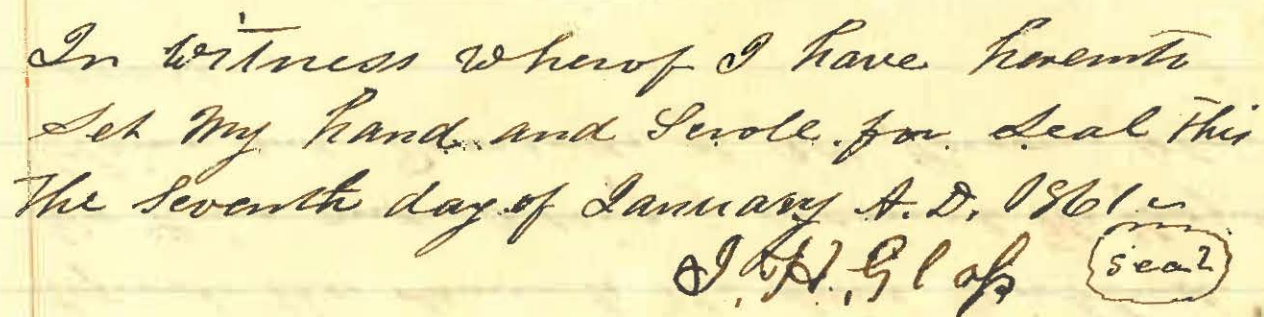 In witness whereof I have hereunto
Set My hand and Scroll for Seal this
the Seventh day of January A.D. 1861
J. H. Glass (seal)